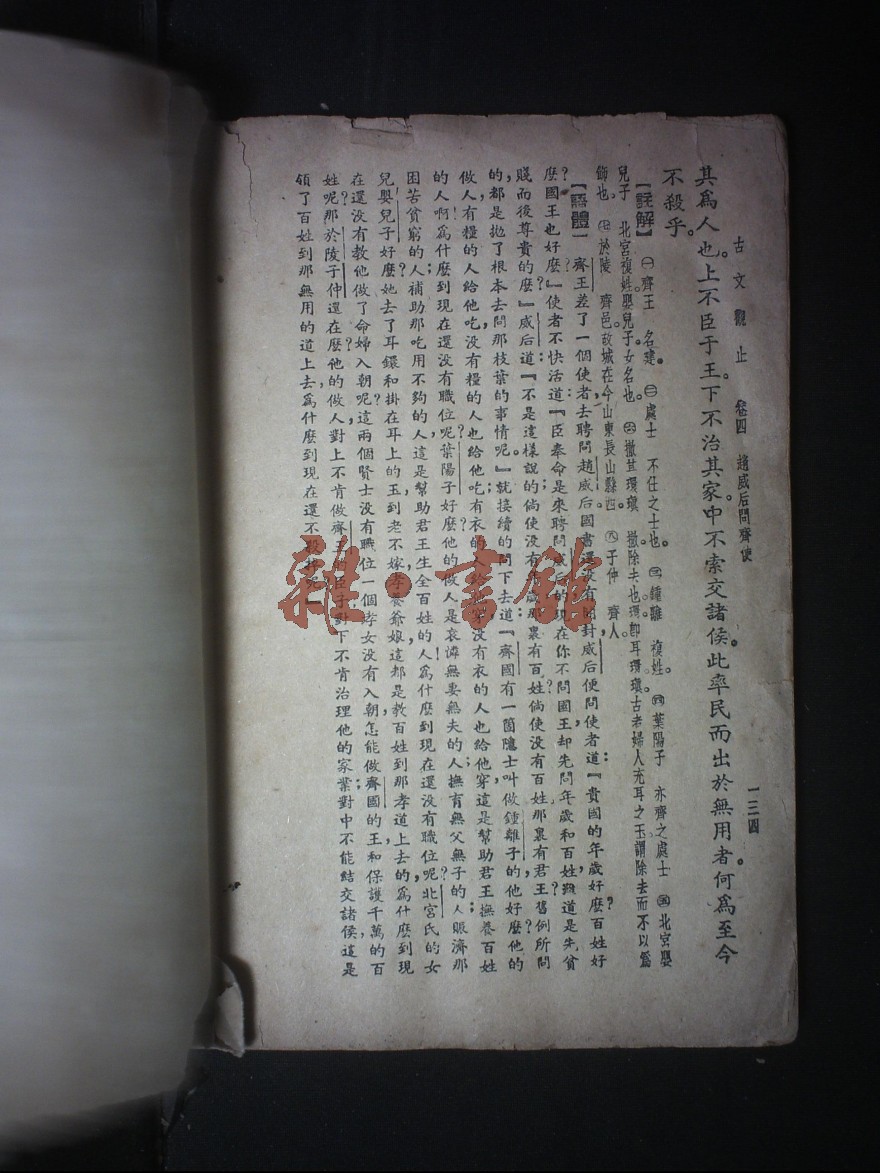 古文觀止 卷四 趙威后問齊使 一三四
其爲人也。上不臣于王。下不治其家。中不索交諸侯。此率民而出於無用者。何爲至今
不殺乎。
【註解】㊀齊王 名建。㊁處士 不仕之士也。㊂鍾離 複姓。㊃葉陽子 亦齊之處士㊄北宮嬰
兒子 北宮複姓。嬰兒子。女名也。㊅撤其環瑱 撤除去也。環卽耳環。瑱。古老婦人充耳之玉。謂除去而不以爲
飾也。㊆於陵 齊邑。故城在今山東長山縣西。㊇子仲 齊人。
【語體】齊王差了一個使者。去聘問趙威后。國書還没有開封威后便問使者道：『貴國的年歲好麽？百姓好
麽？國王也好麽？』使者不快活道：『臣奉命是來聘問威后的；現在你不問國王，却先問年歲和百姓，難道是先貧
賤而後尊貴的麽？』威后道：『不是這樣說的倘使没有年歲，那裏有百姓？倘使没有百姓，那裏有君王？舊例所問
的，都是拋了根本去問那枝葉的事情呢。』就接續的問下去道：『齊國有一箇隱士叫做鍾離子的他好麽？他的
做人，有糧的人給他吃，没有糧的人也給他吃；有衣的人給他穿，没有衣的人也給他穿；這是幫助君王撫養百姓
的人啊！爲什麽到現在還没有職位呢？葉陽子好麽？他的做人是哀憐無妻無夫的人，撫育無父無子的人，賑濟那
困苦貧窮的人；補助那吃用不夠的人，這是幫助君王生全百姓的人！爲什麽到現在還没有職位呢？北宮氏的女
兒嬰兒子好麽？她去了耳鐶和掛在耳上的玉，到老不嫁，孝養爺娘，這都是教百姓到那孝道上去的，爲什麽到現
在還没有教他做了命婦入朝呢？這兩個賢士没有職位，一個孝女没有入朝，怎能做齊國的王，和保護千萬的百
姓呢？那於陵子仲還在麽？他的做人，對上不肯做齊王的臣子；對下不肯治理他的家業；對中不能結交諸侯，這是
領了百姓到那無用的道上去，爲什麽到現在還不